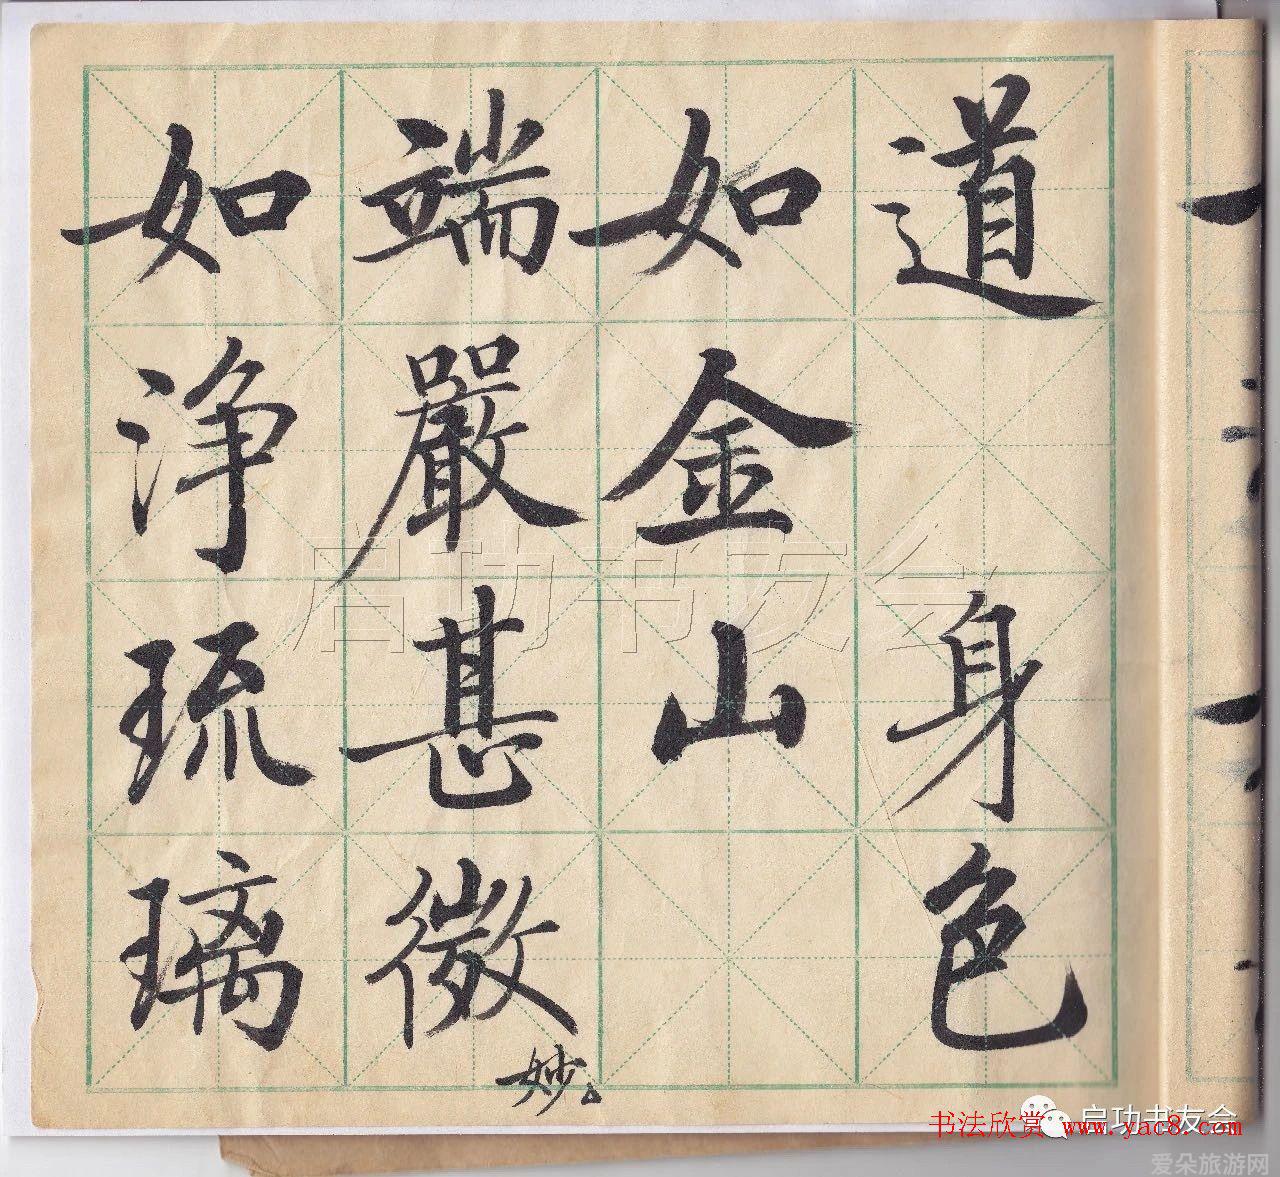 道　身色
如金山
端嚴甚微
妙。
如净琉璃
启功书友会
启功书友会
书法欣赏 www.yac8.com
爱朵旅游网